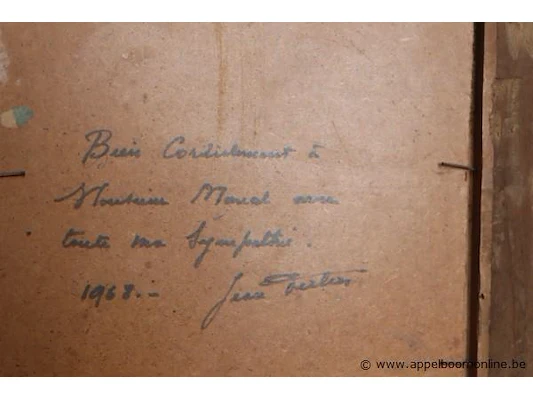 Bien Cordialement à
Monsieur Marcel avec
toute ma Sympathie.
1968.- Jean
© www.appelboomonline.be